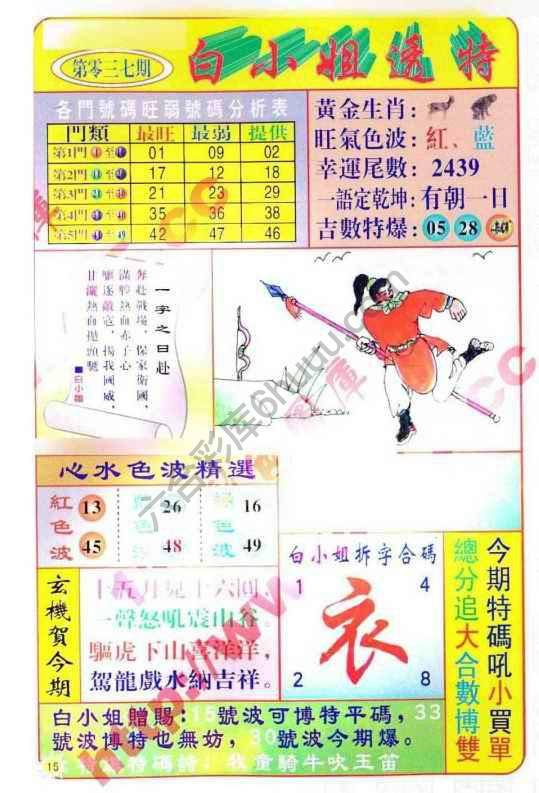 第零三七期
白小姐透特
各門號碼旺弱號碼分析表
門類 最旺 最弱 提供
第1門 01 09 02
第2門 17 12 18
第3門 21 23 29
第4門 35 36 38
第5門 42 47 46
黃金生肖:
旺氣色波:紅、藍
幸運尾數:2439
一語定乾坤:有朝一日
吉數特爆:05 28
一字之曰:赴
奔赴戰場,保家衛國,
滿腔熱血赤子心
驅逐敵寇,揚我國威,
甘灑熱血拋頭
■白小姐
心水色波精選
紅色波 13 45
色 26 48
色波 16 49
玄機賀今期
十五月兒十六回,
一聲怒吼震山谷。
驅虎下山喜洋洋,
駕龍戲水納吉祥。
白小姐拆字合碼
1 4
衣
2 8
今期特碼吼小買單
總分追大合數博雙
白小姐贈賜:15號波可博特平碼,33
號波博特也無妨,30號波今期爆。
特碼詩:牧童騎牛吹玉笛
15
六合彩库6huuu.com